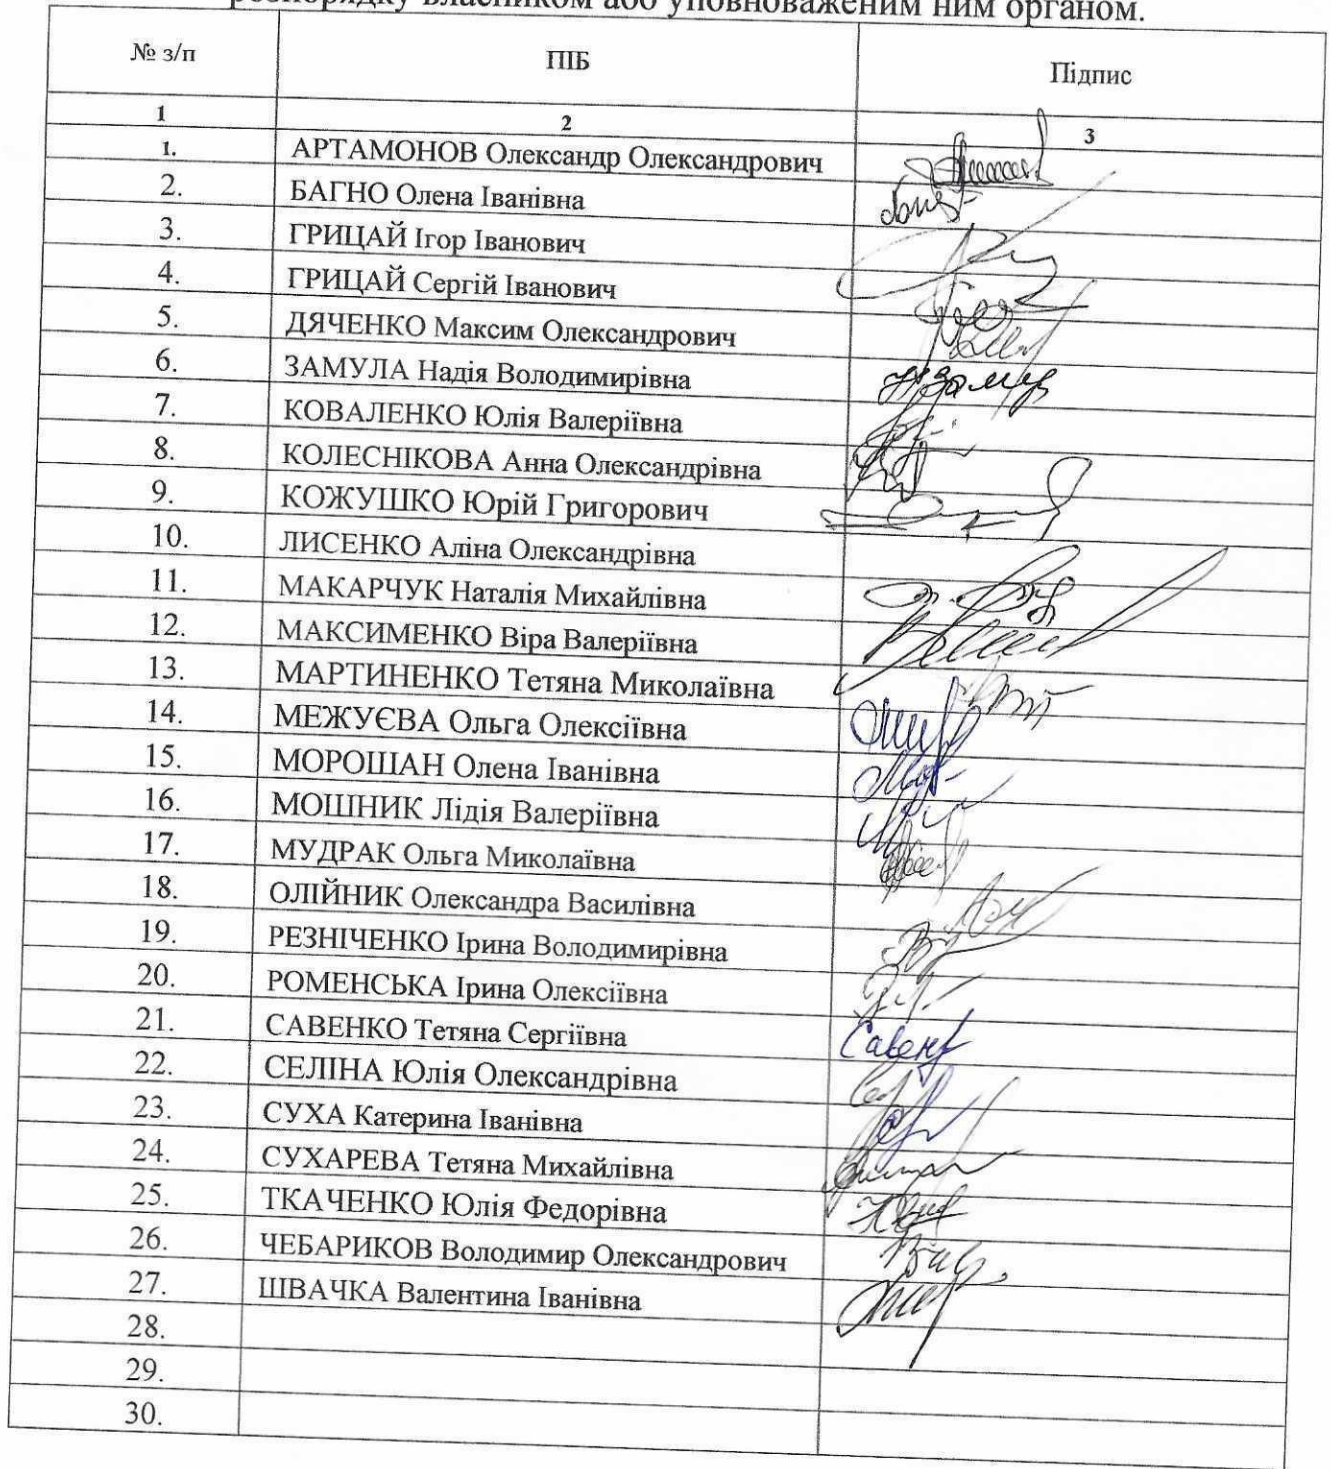 розпорядку власником або уповноваженим ним органом.
№ з/п ПІБ Підпис
1 2 3
1. АРТАМОНОВ Олександр Олександрович
2. БАГНО Олена Іванівна
3. ГРИЦАЙ Ігор Іванович
4. ГРИЦАЙ Сергій Іванович
5. ДЯЧЕНКО Максим Олександрович
6. ЗАМУЛА Надія Володимирівна
7. КОВАЛЕНКО Юлія Валеріївна
8. КОЛЕСНІКОВА Анна Олександрівна
9. КОЖУШКО Юрій Григорович
10. ЛИСЕНКО Аліна Олександрівна
11. МАКАРЧУК Наталія Михайлівна
12. МАКСИМЕНКО Віра Валеріївна
13. МАРТИНЕНКО Тетяна Миколаївна
14. МЕЖУЄВА Ольга Олексіївна
15. МОРОШАН Олена Іванівна
16. МОШНИК Лідія Валеріївна
17. МУДРАК Ольга Миколаївна
18. ОЛІЙНИК Олександра Василівна
19. РЕЗНІЧЕНКО Ірина Володимирівна
20. РОМЕНСЬКА Ірина Олексіївна
21. САВЕНКО Тетяна Сергіївна
22. СЕЛІНА Юлія Олександрівна
23. СУХА Катерина Іванівна
24. СУХАРЕВА Тетяна Михайлівна
25. ТКАЧЕНКО Юлія Федорівна
26. ЧЕБАРИКОВ Володимир Олександрович
27. ШВАЧКА Валентина Іванівна
28.
29.
30.